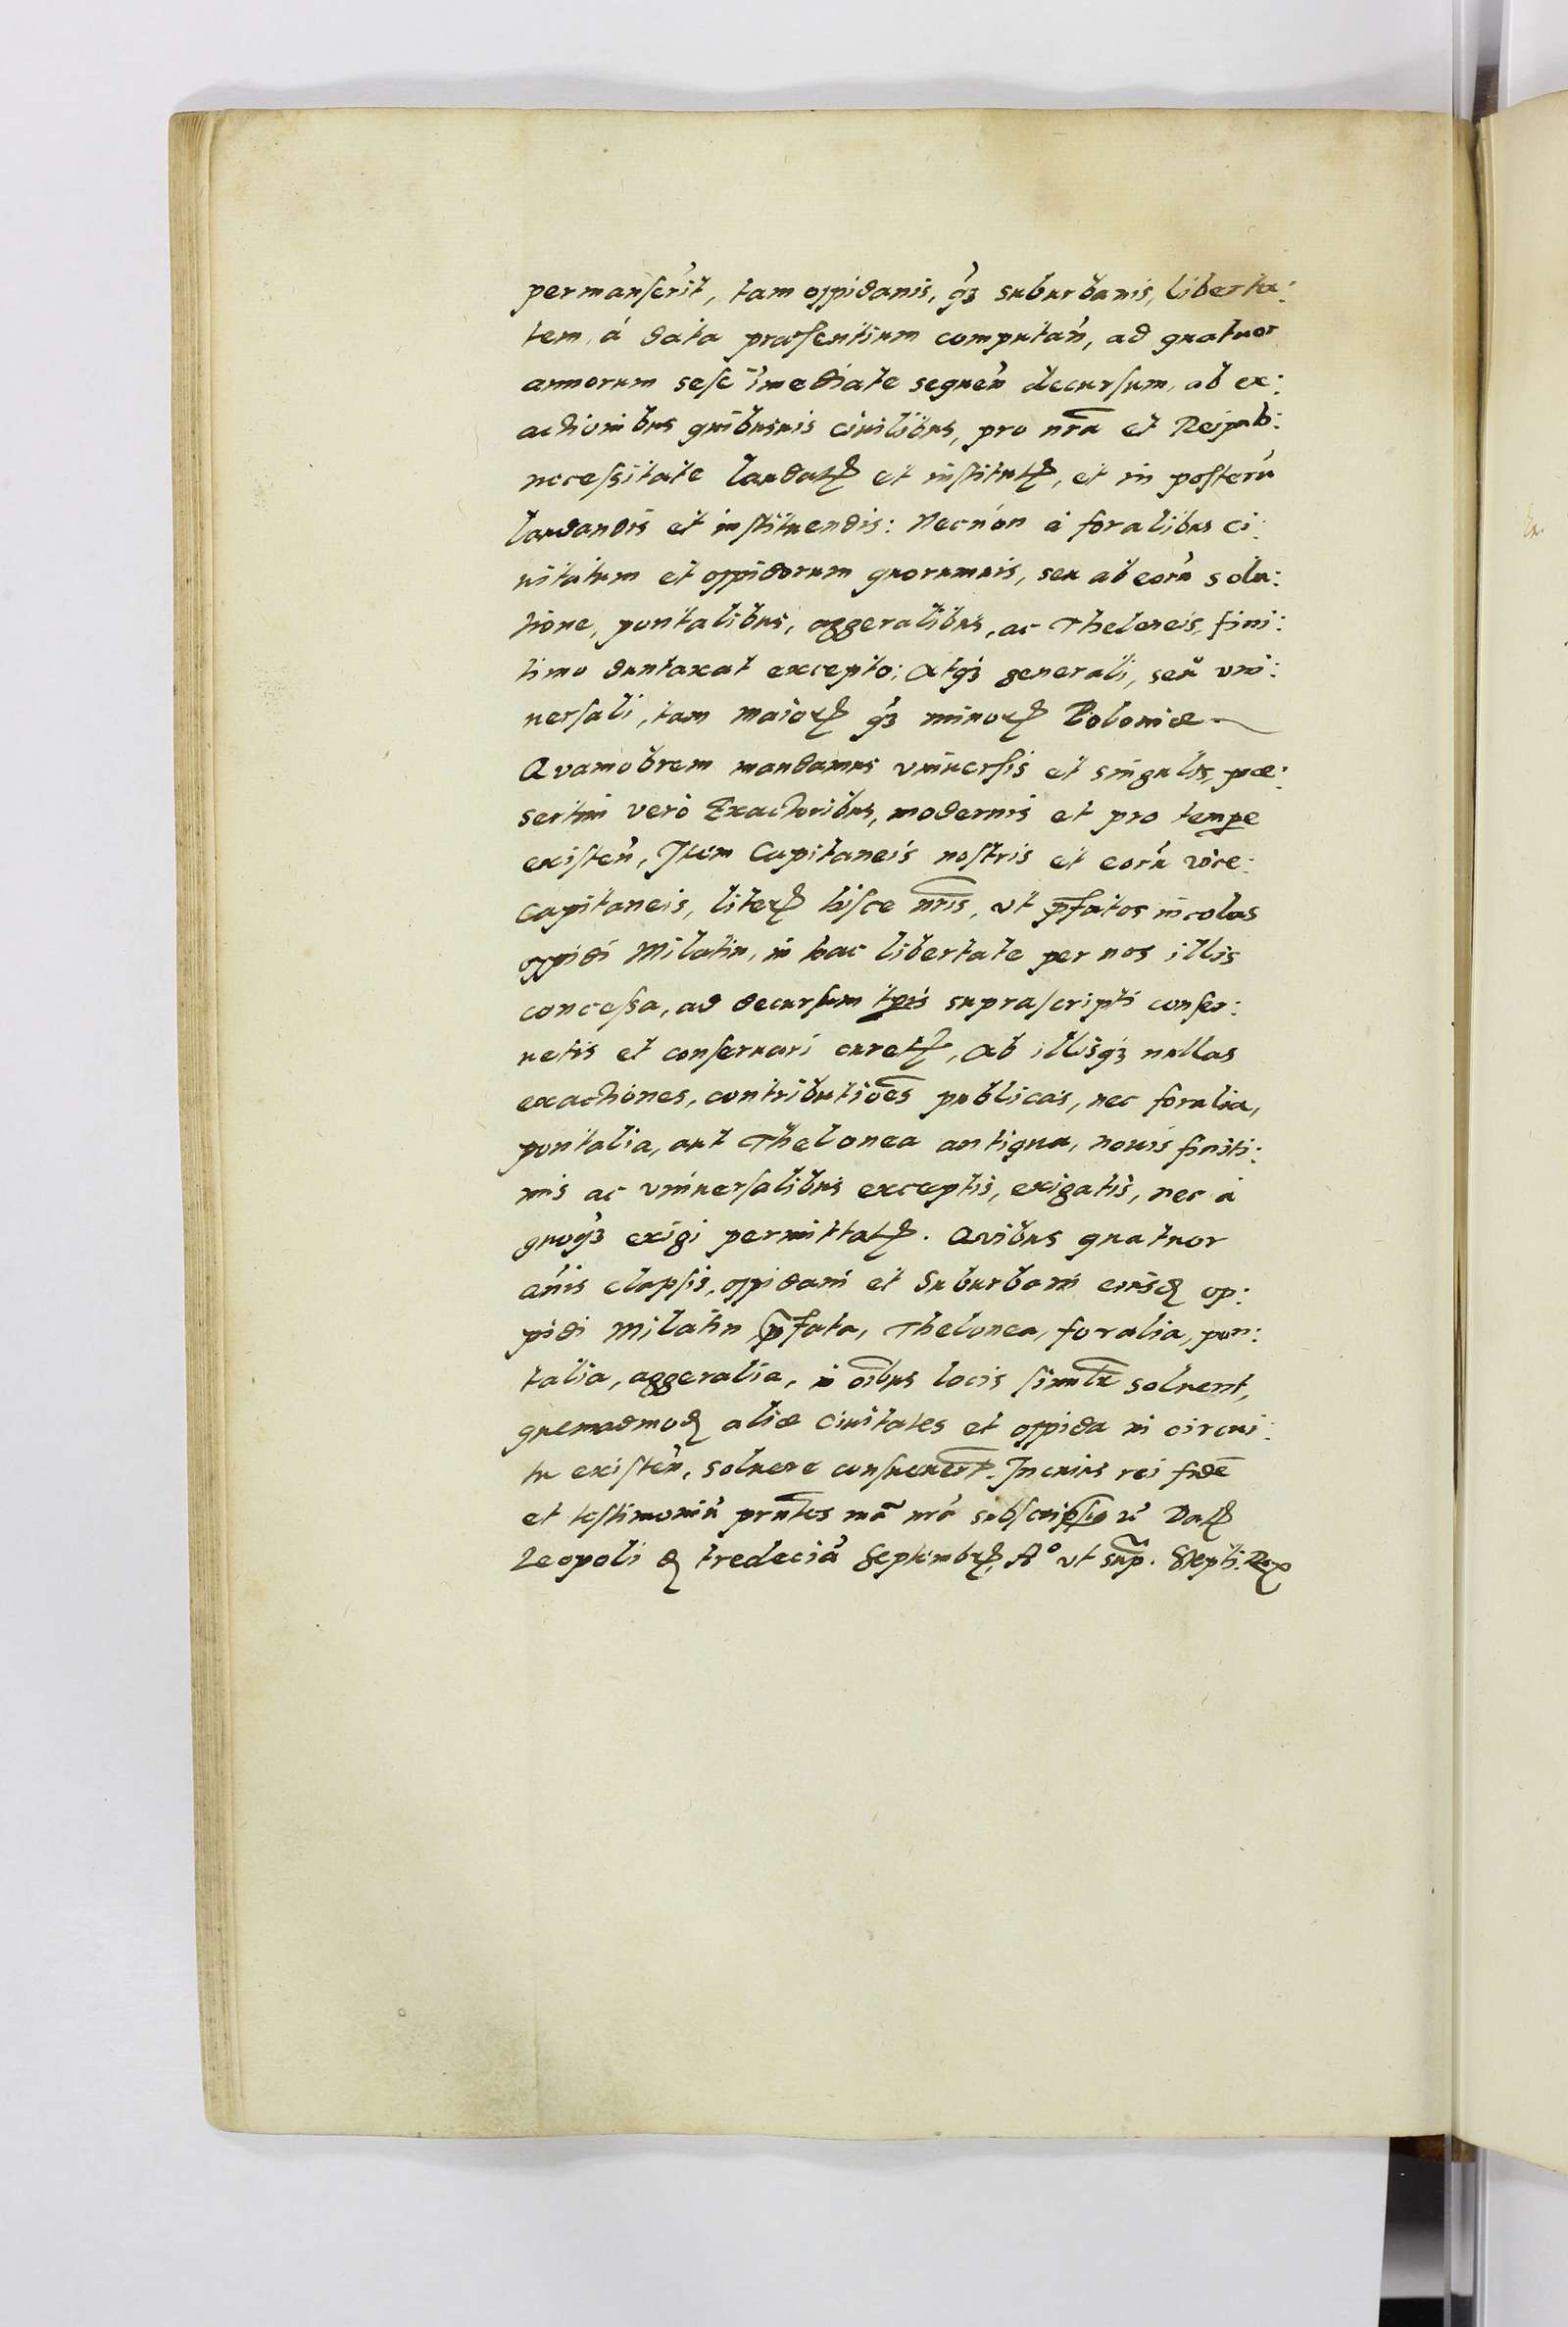 permanserit, tam oppidanis, q́ꝫ suburbanis, liberta:
tem, á data præsentium computań, ad quatuor
annorum sese im̄ediate sequeń decursum, ab ex:
actionibus quibusuis ciuilibus, pro nr̄a et Reipub:
necessitate laudatꝭ et institutꝭ, et in posterū
laudandis et instituendis: Necnon á foralibus ci:
uitatum et oppidorum quorumuis, seu ab eorū solu:
tione, pontalibus, aggeralibus, ac Theloneis, fini:
timo duntaxat excepto: Atqꝫ generali, seu vni:
uersali, tam maiorꝭ q́ꝫ minorꝭ Poloniæ
Quamobrem mandamus vniuersis et singulis, præ:
sertim verò Exactoribus, modernis et pro tempe
existeń, Item Capitaneis nostris et eorū vice:
capitaneis, literꝭ hisce nr̄is, vt p̄fatos incolas
oppidi Milatin, in hac libertate per nos illis
concessa, ad decursum tꝑis suprascripti conser:
uetis et conseruari curetꝭ, Ab illisqꝫ nullas
exactiones, contributiōes publicas, nec foralia,
pontalia, aut Thelonea antiqua, nouis finiti:
mis ac vniuersalibus exceptis, exigatis, nec á
quoqꝫ exigi permittatꝭ. Quibus quatuor
anīs elapsis, oppidani et Suburbani eiusdꝫ op:
pidi Milatin p̄fata, Thelonea, foralia, pon:
talia, aggeralia, in oībus locis simulr̄ soluent,
quemadmodꝫ aliæ Ciuitates et oppida in circui:
tu existeń, soluere consueuer̄t. In cuius rei fidē
et testimoniū prn̄tes mā nrā
Leopoli d tredecia Septembrꝭ, A° vt sup̄. Stephˢ: Rex